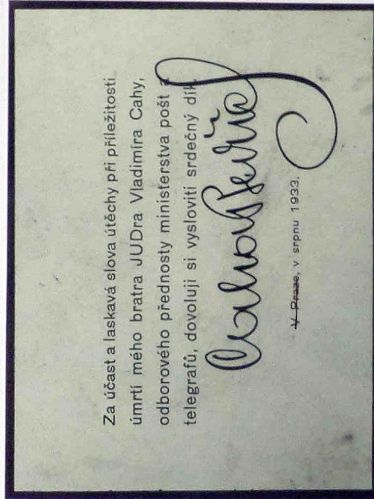 Za účast a laskavá slova útěchy při příležitosti
úmrtí mého bratra JUDra Vladimíra Cahy,
odborového přednosty ministerstva pošt a
telegrafů, dovoluji si vysloviti srdečný dík.
V Praze, v srpnu 1933.